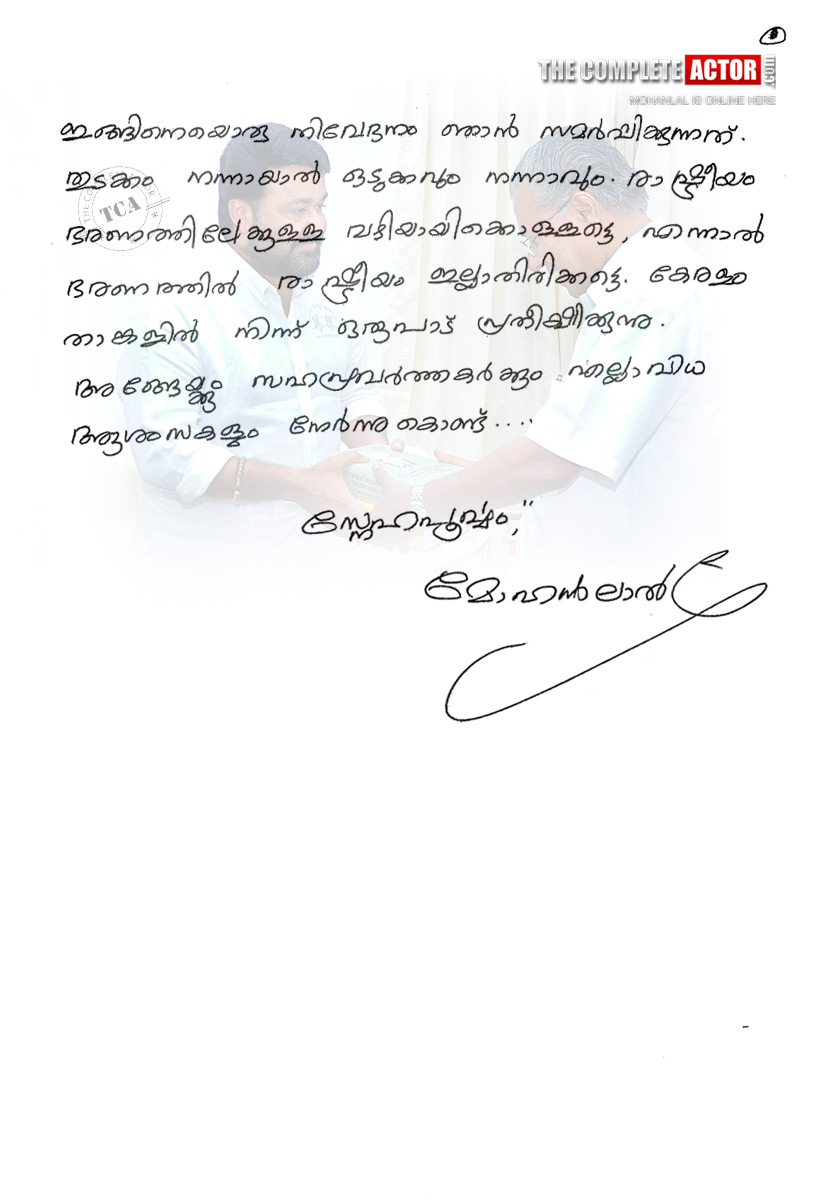 THE COMPLETE ACTOR .com
MOHANLAL IS ONLINE HERE
ഇങ്ങിനെയൊരു നിവേദനം ഞാൻ സമർപ്പിക്കുന്നത്.
തുടക്കം നന്നായാൽ ഒടുക്കവും നന്നാവും. രാഷ്ട്രീയം
TCA
ഭരണത്തിലേക്കുള്ള വഴിയായിക്കൊള്ളട്ടെ, എന്നാൽ
ഭരണത്തിൽ രാഷ്ട്രീയം ഇല്ലാതിരിക്കട്ടെ. കേരളം
താങ്കളിൽ നിന്ന് ഒരുപാട് പ്രതീക്ഷിക്കുന്നു.
അങ്ങേയ്ക്കും സഹപ്രവർത്തകർക്കും എല്ലാവിധ
ആശംസകളും നേർന്നുകൊണ്ട്....
സ്നേഹപൂർവ്വം,
മോഹൻലാൽ